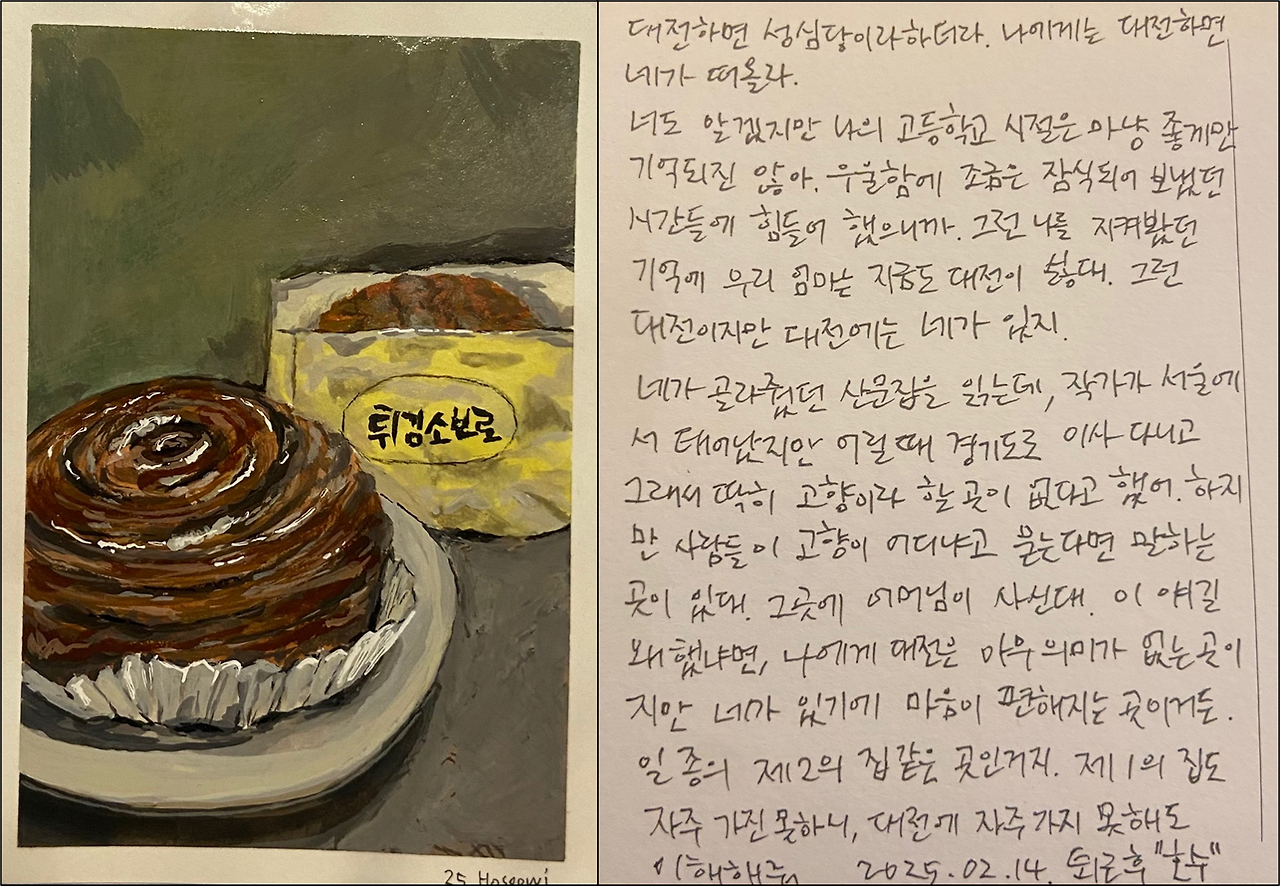 튀김소보로
25 Hoseowi
대전하면 성심당이라하더라. 나에게는 대전하면
네가 떠올라.
너도 알겠지만 나의 고등학교 시절은 마냥 좋게만
기억되진 않아. 우울함에 조금은 잠식되어 보냈던
시간들에 힘들어 했으니까. 그런 나를 지켜봤던
기억에 우리 엄마는 지금도 대전이 싫대. 그런
대전이지만 대전에는 네가 있지.
네가 골라줬던 산문집을 읽는데, 작가가 서울에
서 태어났지만 어릴때 경기도로 이사 다니고
그래서 딱히 고향이라 할 곳이 없다고 했어. 하지
만 사람들이 고향이 어디냐고 묻는다면 말하는
곳이 있대. 그곳에 어머님이 사신대. 이 얘길
왜 했냐면, 나에게 대전은 아무 의미가 없는 곳이
지만 네가 있기에 마음이 편해지는 곳이거든.
일종의 제2의 집 같은 곳인거지. 제1의 집도
자주 가진 못하니, 대전에 자주 가지 못해도
이해해줘 2025.02.14. 퇴근후 "호수"